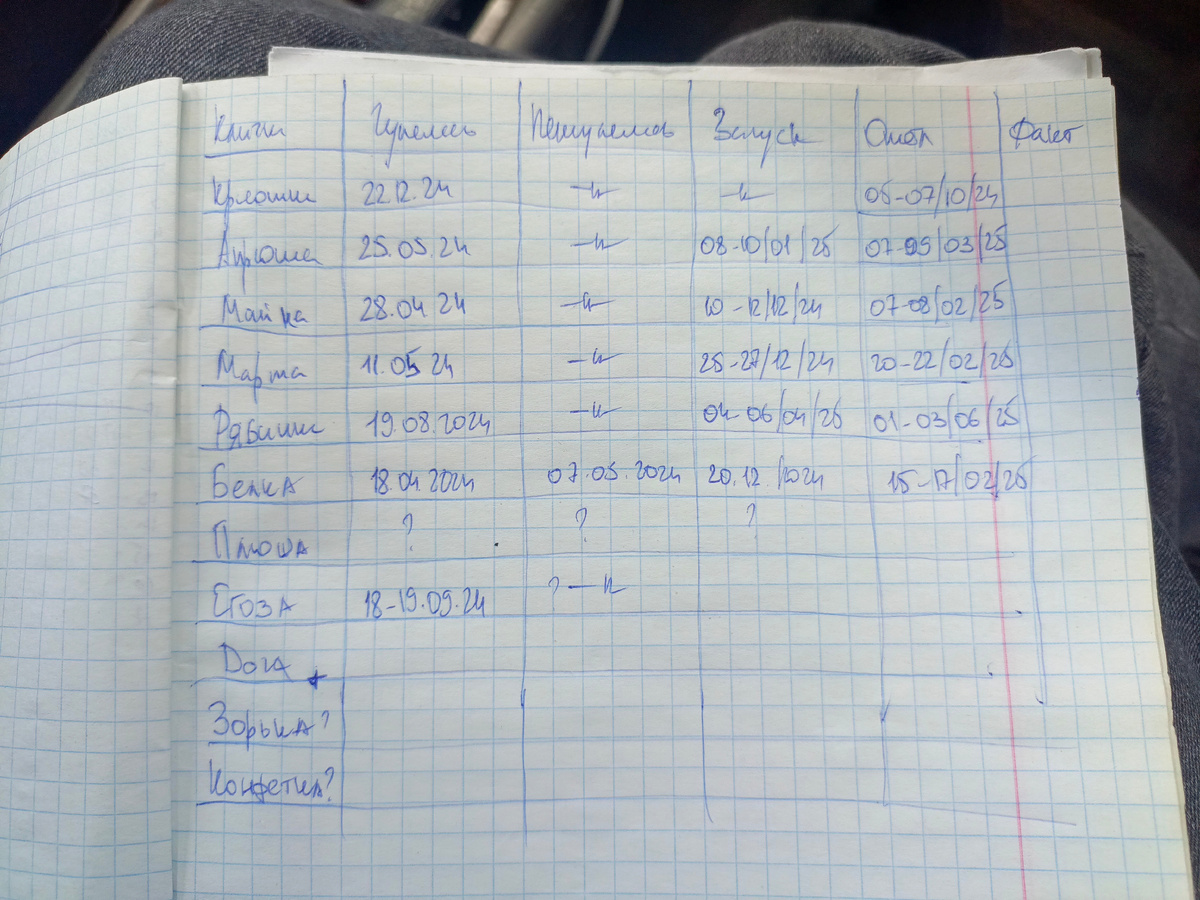 Клички Гулялась Перегулялась Запуск Отел Факт
22.12.24 —н —н 05-07/10/24
Апрюша 25.05.24 —н 08-10/01/25 07-09/03/25
Майка 28.04.24 —н 10-12/12/24 07-08/02/25
Марта 11.05.24 —н 25-27/12/24 20-22/02/25
Рябина 19.08.2024 —н 04-06/04/25 01-03/06/25
Белка 18.04.2024 07.05.2024 20.12./2024 15-17/02/25
Плюша ? ? ?
Егоза 18-19.09.24 ? —н
Дога
Зорька?
Конфетка?